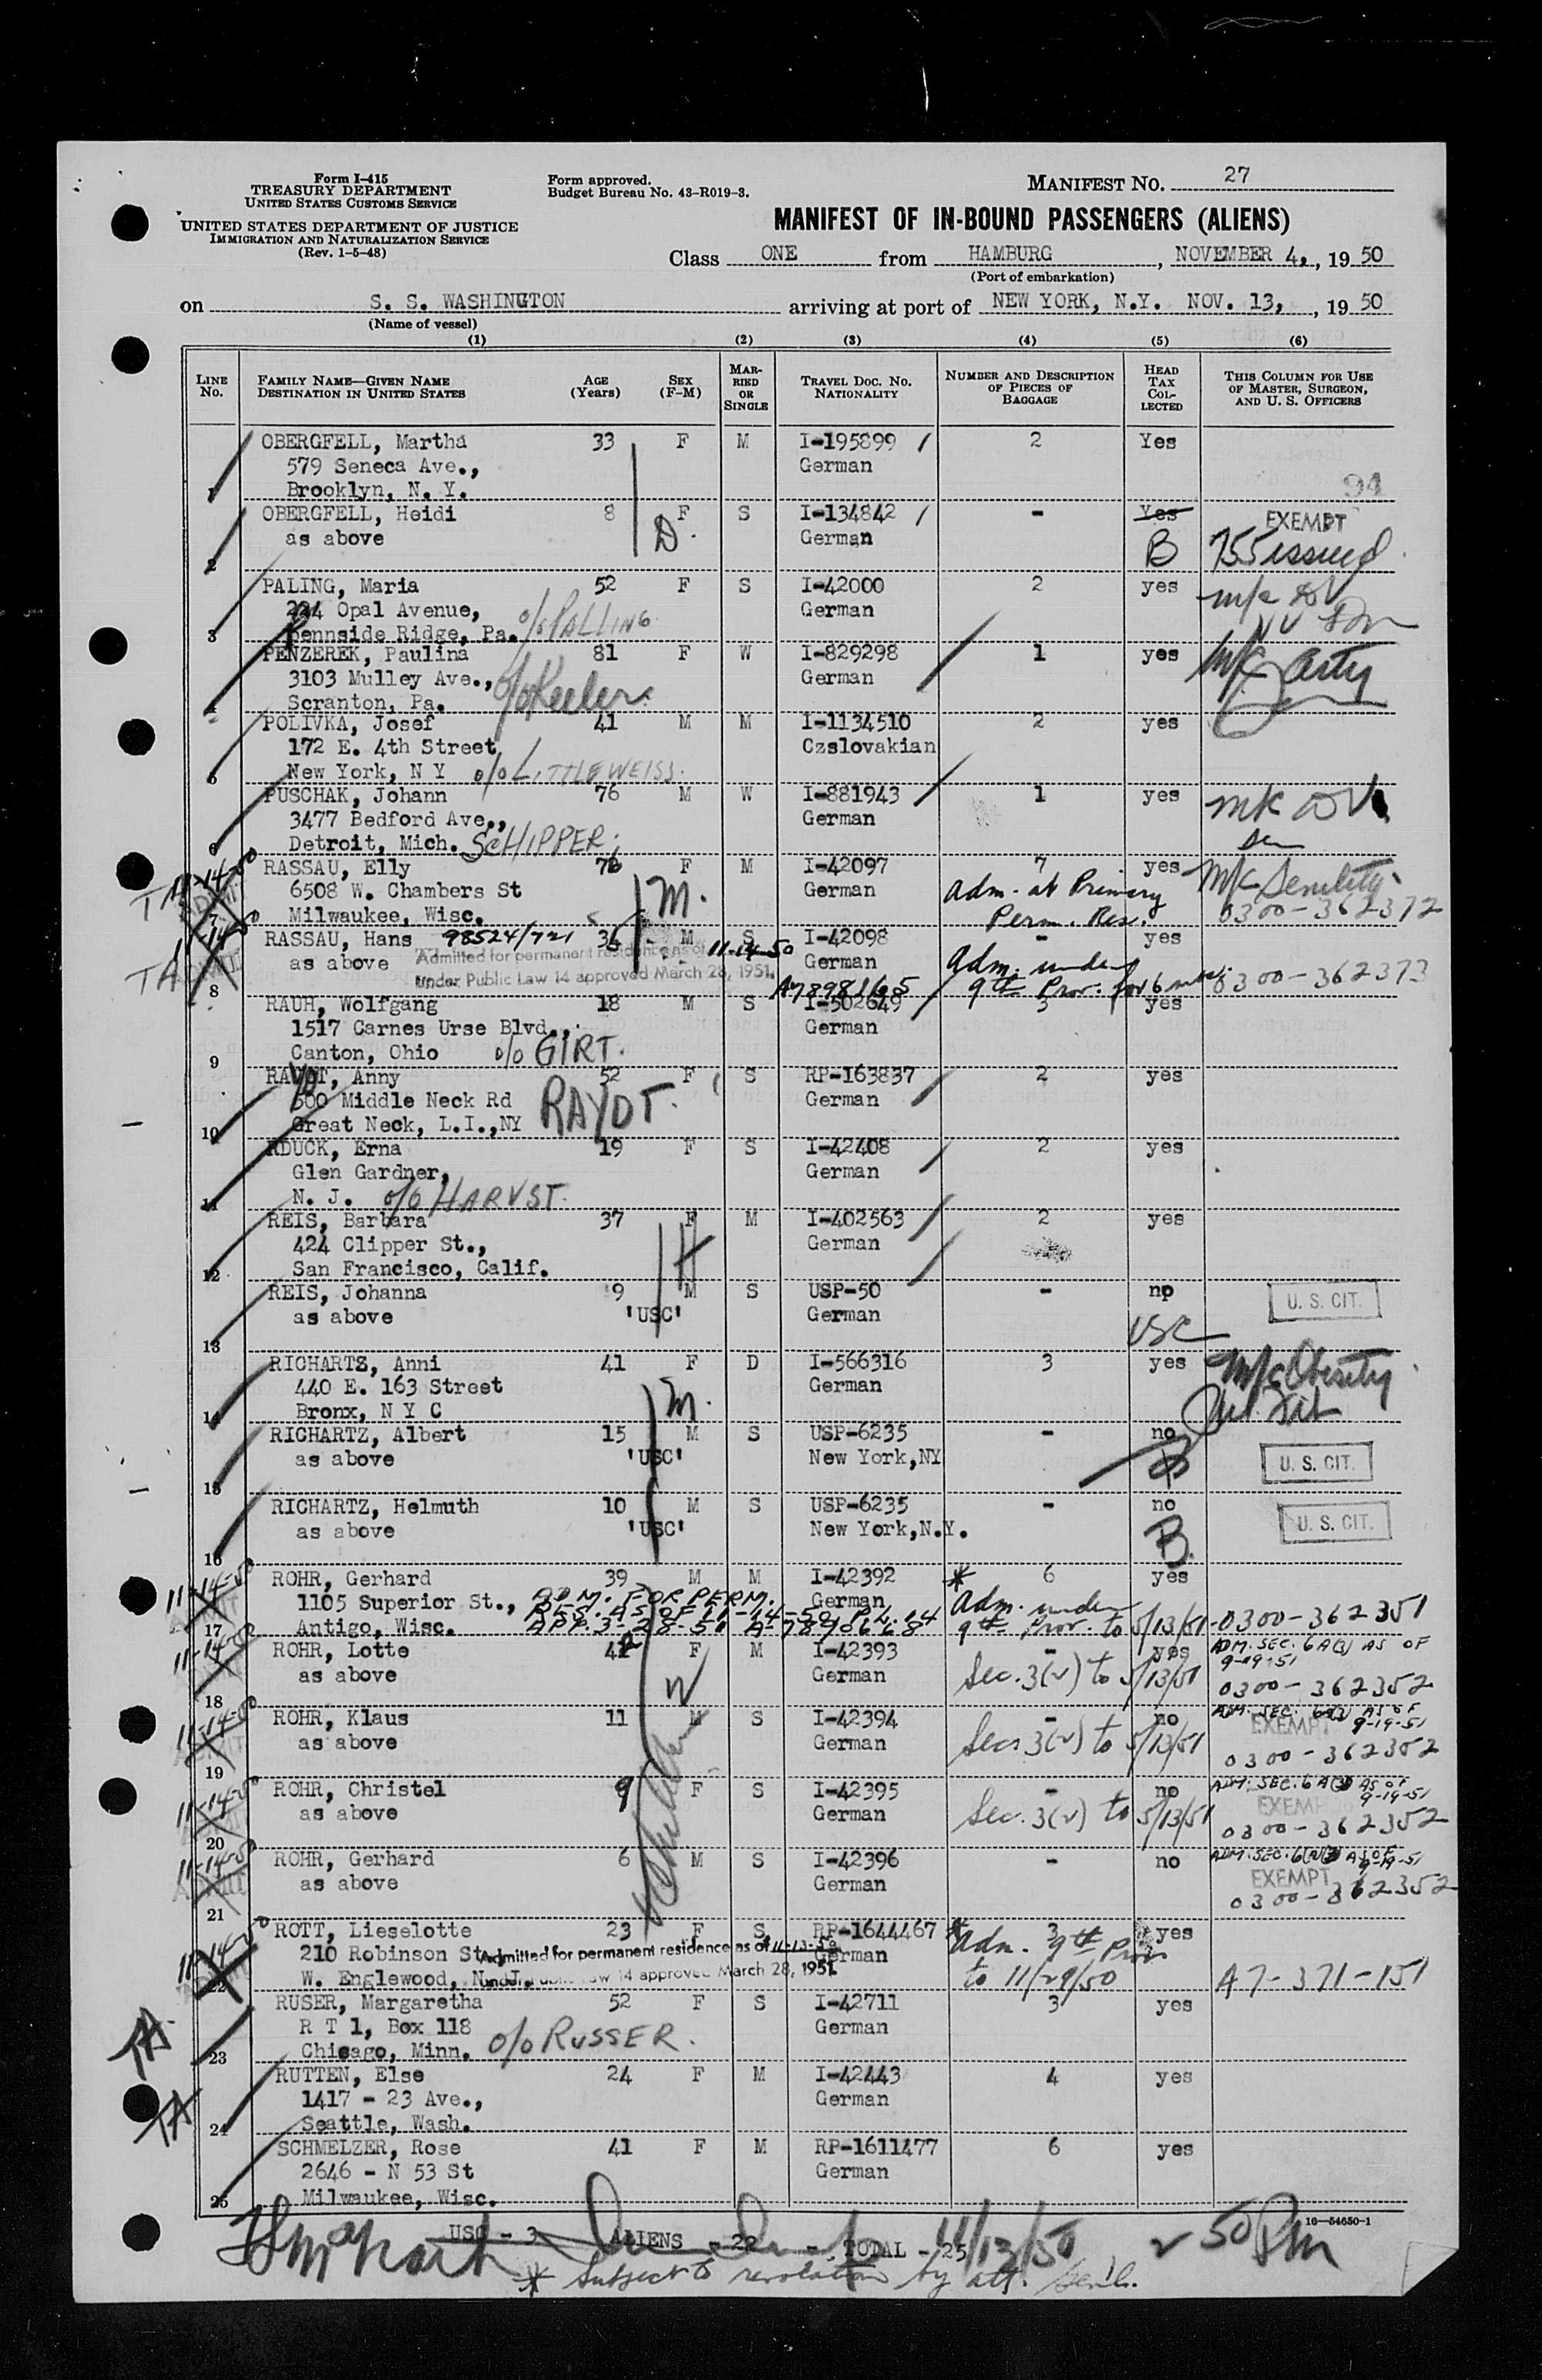 Form I-415
TREASURY DEPARTMENT
UNITED STATES CUSTOMS SERVICE
UNITED STATES DEPARTMENT OF JUSTICE
IMMIGRATION AND NATURALIZATION SERVICE
(Rev. 1-5-48)
Form approved.
Budget Bureau No. 43-R019-3.
MANIFEST No. 27
MANIFEST OF IN-BOUND PASSENGERS (ALIENS)
Class ONE from HAMBURG, NOVEMBER 4, , 19 50
(Port of embarkation)
on S. S. WASHINGTON arriving at port of NEW YORK, N.Y. NOV. 13, , 19 50
(Name of vessel)
(1) (2) (3) (4) (5) (6)
LINE No. FAMILY NAME—GIVEN NAME DESTINATION IN UNITED STATES AGE (Years) SEX (F-M) MARRIED OR SINGLE TRAVEL DOC. NO. NATIONALITY NUMBER AND DESCRIPTION OF PIECES OF BAGGAGE HEAD TAX COLLECTED THIS COLUMN FOR USE OF MASTER, SURGEON, AND U. S. OFFICERS
OBERGFELL, Martha 33 F M I-195899 2 Yes
579 Seneca Ave., German
1 Brooklyn, N. Y. 94
OBERGFELL, Heidi 8 F S I-134842 - Yes EXEMPT
as above D. German B 755 issued
2
PALING, Maria 52 F S I-42000 2 yes
Opal Avenue, c/o PALLING German
3 Pennside Ridge, Pa.
PENZEREK, Paulina 81 F W I-829298 1 yes
3103 Mulley Ave., c/o Keeler German
4 Scranton, Pa.
POLIVKA, Josef 41 M M I-1134510 2 yes
172 E. 4th Street Czslovakian
5 New York, N Y c/o LITTLEWEISS.
PUSCHAK, Johann 76 M W I-881943 1 yes
3477 Bedford Ave., German
6 Detroit, Mich. SCHIPPER
RASSAU, Elly 76 F M I-42097 7 yes M/c Senility
6508 W. Chambers St M. German Adm. at Primary
7 Milwaukee, Wisc. Perm. Res. 0300-362372
RASSAU, Hans 98524/721 36 M S I-42098 - yes
as above Admitted for permanent residence as of 11-14-50 German Adm. under
8 Under Public Law 14 approved March 28, 1951. A7898165 9th Prov. for 6 0300-362373
RAUH, Wolfgang 18 M S I-502649 3 yes
1517 Carnes Urse Blvd., German
9 Canton, Ohio c/o GIRT.
Anny 52 F S RP-163837 2 yes
500 Middle Neck Rd RAYDT. German
10 Great Neck, L.I.,NY
RDUCK, Erna 19 F S I-42408 2 yes
Glen Gardner, German
11 N. J. c/o HARVST.
REIS, Barbara 37 F M I-402563 2 yes
424 Clipper St., H German
12 San Francisco, Calif.
REIS, Johanna 9 M S USP-50 - no U. S. CIT.
as above 'USC' German USC
13
RICHARTZ, Anni 41 F D I-566316 3 yes M/c Obesity
440 E. 163 Street German
14 Bronx, N Y C M.
RICHARTZ, Albert 15 M S USP-6235 - no
as above 'USC' New York,NY B U. S. CIT.
15
RICHARTZ, Helmuth 10 M S USP-6235 - no
as above 'USC' New York,N.Y. B. U. S. CIT.
16
11-14-50 ROHR, Gerhard 39 M M I-42392 * 6 yes
1105 Superior St., ADM. FOR PERM. German Adm. under
RES. AS OF 11-14-50 P.L. 14
17 Antigo, Wisc. APP. 3-28-51 A-7890668 9th Prov. to 5/13/51 0300-362351
11-14-50 ROHR, Lotte 42 F M I-42393 - yes ADM. SEC. 6A(3) AS OF 9-19-51
as above German Sec. 3(2) to 5/13/51
18 0300-362352
11-14-50 ROHR, Klaus 11 M S I-42394 - no ADM. SEC. 6A(3) AS OF 9-19-51
as above German Sec 3(2) to 5/13/51 EXEMPT
19 0300-362352
11-14-50 ROHR, Christel 9 F S I-42395 - no ADM. SEC. 6A(3) AS OF 9-19-51
as above German Sec. 3(2) to 5/13/51 EXEMPT
20 0300-362352
11-14-50 ROHR, Gerhard 6 M S I-42396 - no ADM. SEC. 6(A)(3) AS OF 9-19-51
as above German EXEMPT
21 0300-362352
11-14-50 ROTT, Lieselotte 23 F S RP-1644467 * 3 yes
210 Robinson St. Admitted for permanent residence as of 11-13-50 German Adm. 9th Prov
22 W. Englewood, N. J. under Public Law 14 approved March 28, 1951. to 11/29/50 A7-371-151
RUSER, Margaretha 52 F S I-42711 3 yes
TA R T 1, Box 118 c/o RUSSER. German
23 Chicago, Minn.
RUTTEN, Else 24 F M I-42443 4 yes
TA 1417 - 23 Ave., German
24 Seattle, Wash.
SCHMELZER, Rose 41 F M RP-1611477 6 yes
2646 - N 53 St German
25 Milwaukee, Wisc.
16—54650-1
USC - 3 ALIENS - 22 - TOTAL - 25 11/13/50 2 50 Pm
* Subject to revocation by att. Gen'l.